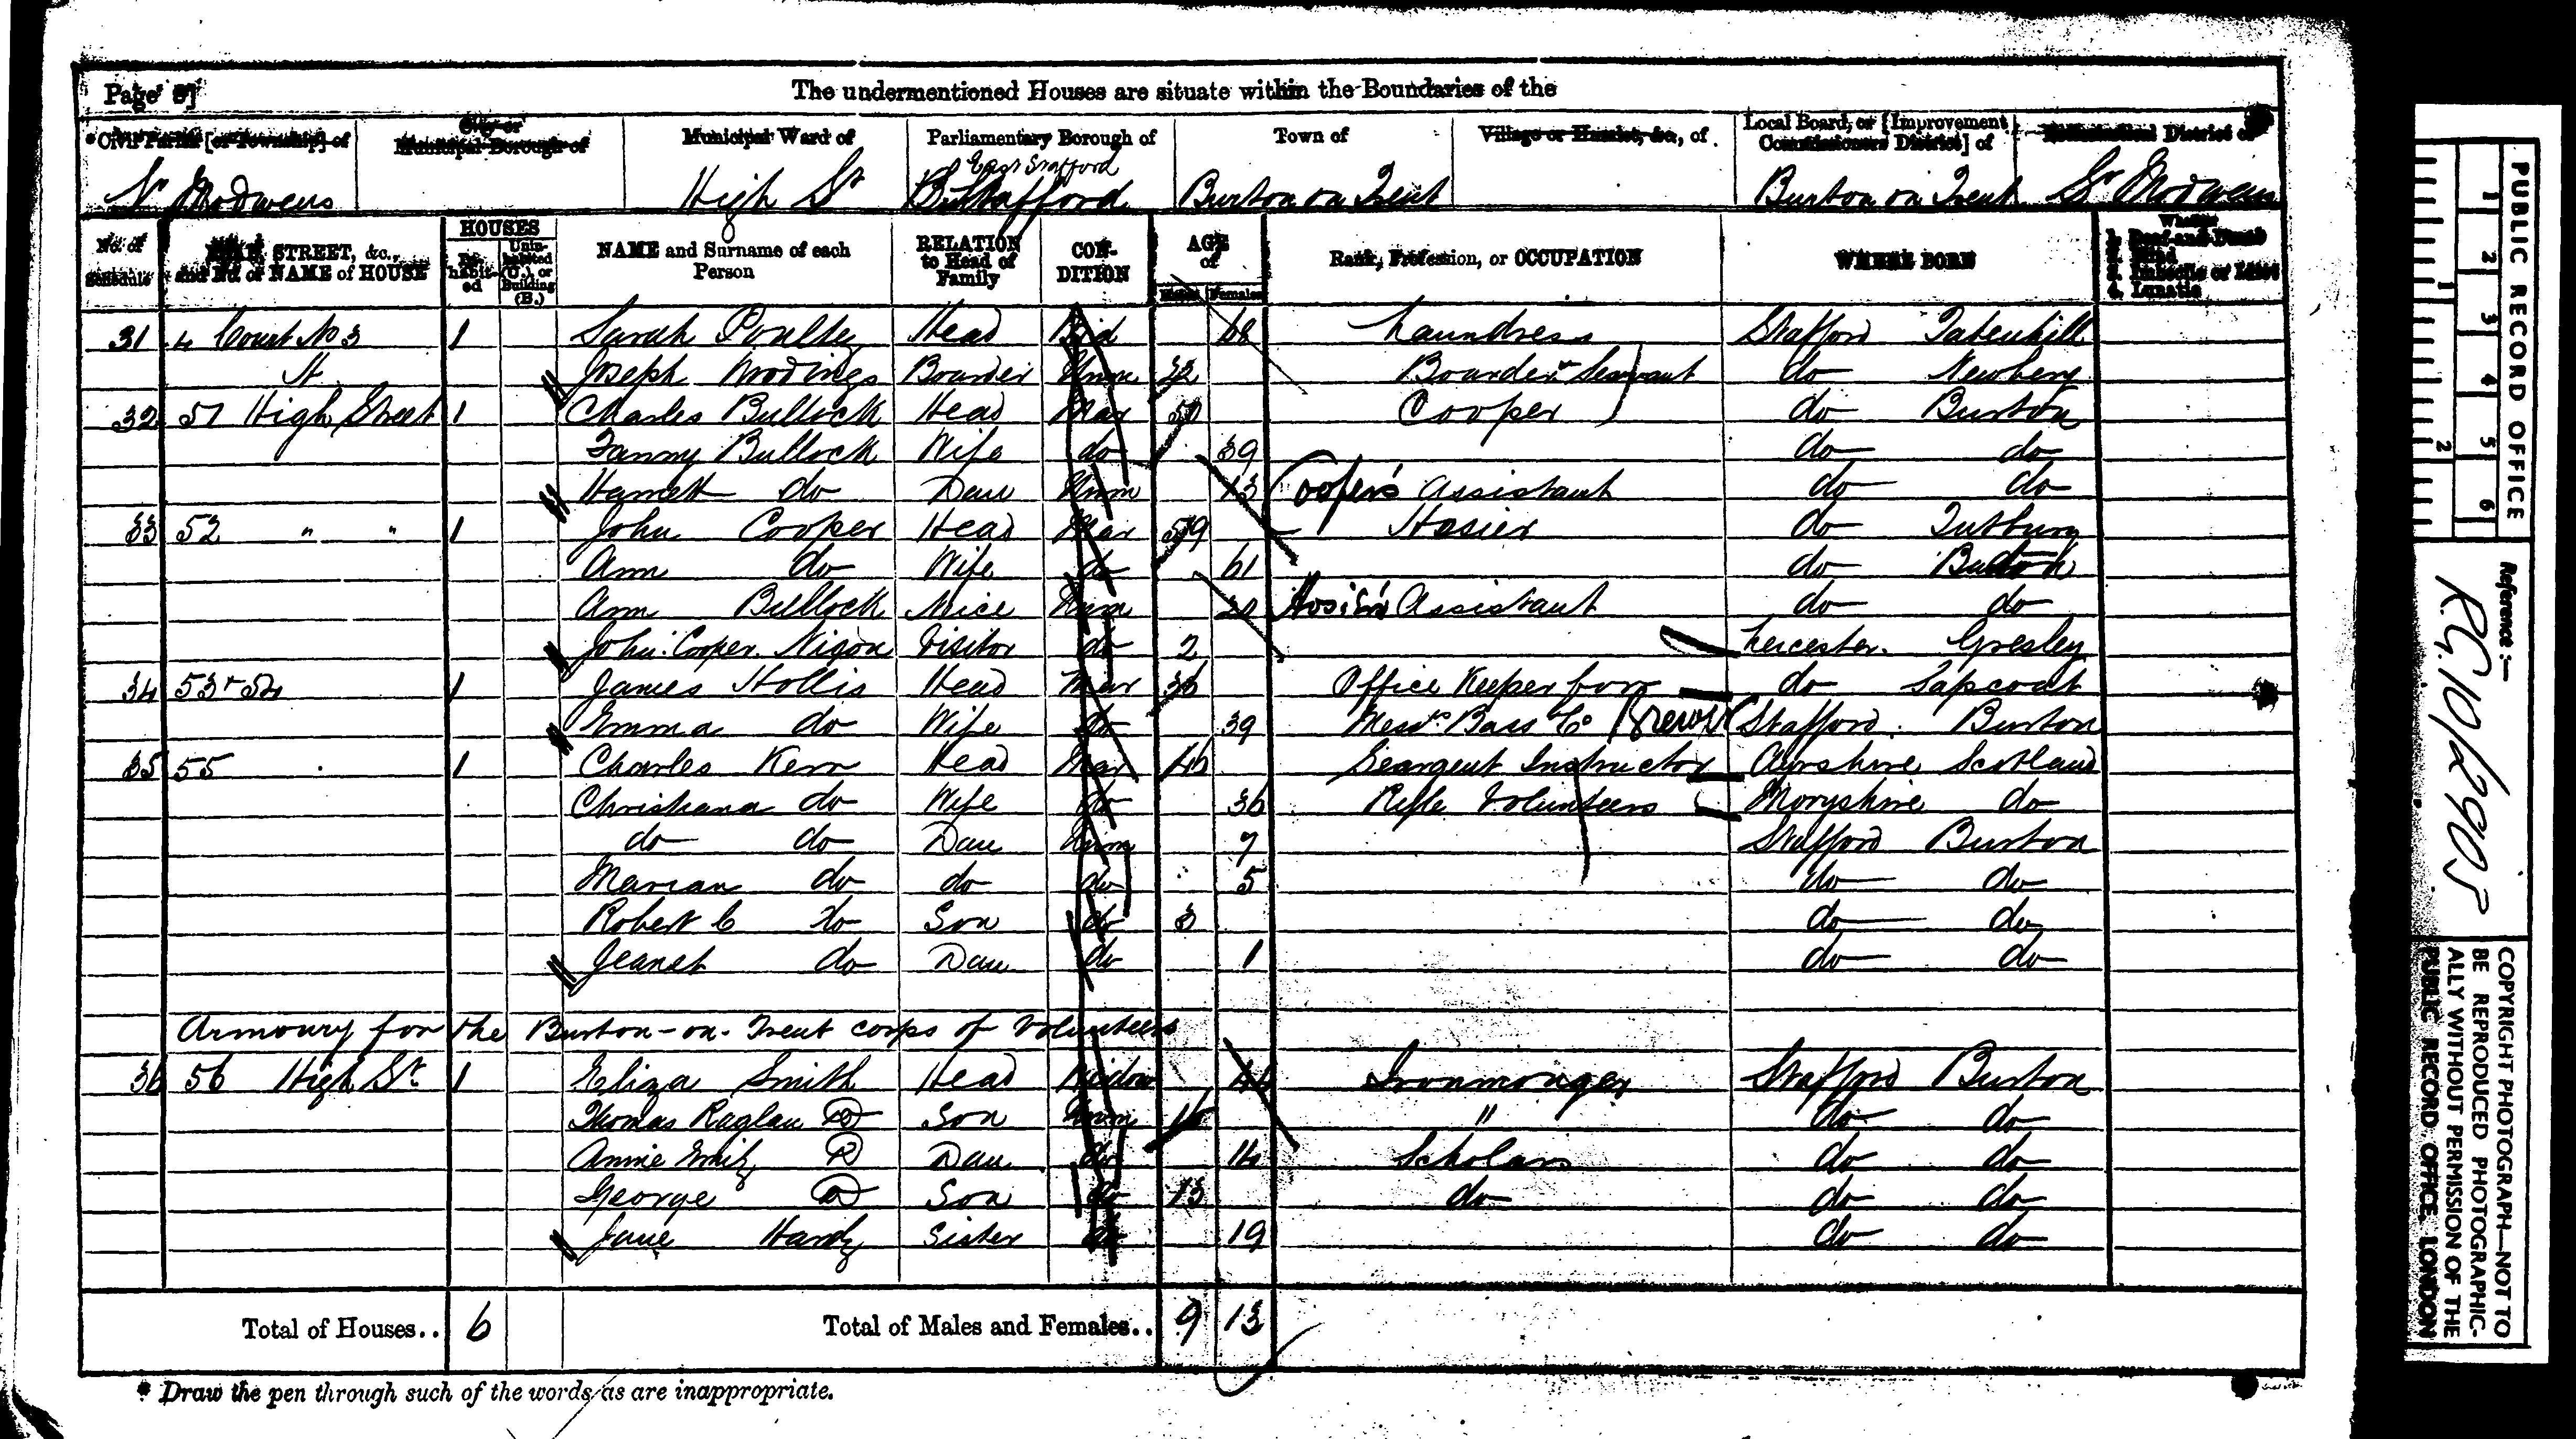 Page 8]
The undermentioned Houses are situate within the Boundaries of the
*Civil Parish [or Township] of City or Municipal Borough of Municipal Ward of Parliamentary Borough of Town of Village or Hamlet, &c., of Local Board, or [Improvement Commissioners District] of Ecclesiastical District of
St Modwens High St East Stafford Burton on Trent Burton on Trent St Modwens
No. of Schedule ROAD, STREET, &c., and No. or NAME of HOUSE HOUSES Inhabited Uninhabited (U.), or Building (B.) NAME and Surname of each Person RELATION to Head of Family CONDITION AGE of Males Females Rank, Profession, or OCCUPATION WHERE BORN Whether 1. Deaf-and-Dumb 2. Blind 3. Imbecile or Idiot 4. Lunatic
31 4 Court No 3 1 Sarah Poulte Head 68 Laundress Stafford Tatenhill
Joseph Boarder Unm 32 Servant do Newbery
32 51 High Street 1 Charles Bullock Head Mar Cooper do Burton
Fanny Bullock Wife do 39 do do
Harriett do Dau Unm 13 Cooper's Assistant do do
33 52 " " 1 John Cooper Head Mar 59 Hosier do Tutbury
Ann do Wife do 61 do Burton
Ann Bullock Niece Unm 20 Hosier's Assistant do do
John Cooper Nixon Visitor do 2 Leicester Gresley
34 53 & 54 1 James Hollis Head Mar 36 Office Keeper for do Sapcoat
Emma do Wife do 39 Messrs Bass & Co Brewer Stafford Burton
35 55 1 Charles Kerr Head Mar 46 Seargent Instructor Ayrshire Scotland
Christiana do Wife do 36 Rifle Volunteers Moryshire do
do do Dau Unm 7 Stafford Burton
Marian do do do 5 do do
Robert C do Son do 3 do do
Jeanet do Dau do 1 do do
Armoury for the Burton-on-Trent corps of Volunteers
36 56 High St 1 Eliza Smith Head Widow 46 Ironmonger Stafford Burton
Thomas Raglan do Son Unm 16 " do do
Annie Emily do Dau do 14 Scholar do do
George do Son do 13 do do do
Jane Hardy Sister do 19 do do
Total of Houses.. 6 Total of Males and Females.. 9 13
* Draw the pen through such of the words as are inappropriate.
PUBLIC RECORD OFFICE
1 2 3 4 5 6
1 2
Reference :—
R.G. 10/2905
COPYRIGHT PHOTOGRAPH—NOT TO
BE REPRODUCED PHOTOGRAPHIC-
ALLY WITHOUT PERMISSION OF THE
PUBLIC RECORD OFFICE, LONDON